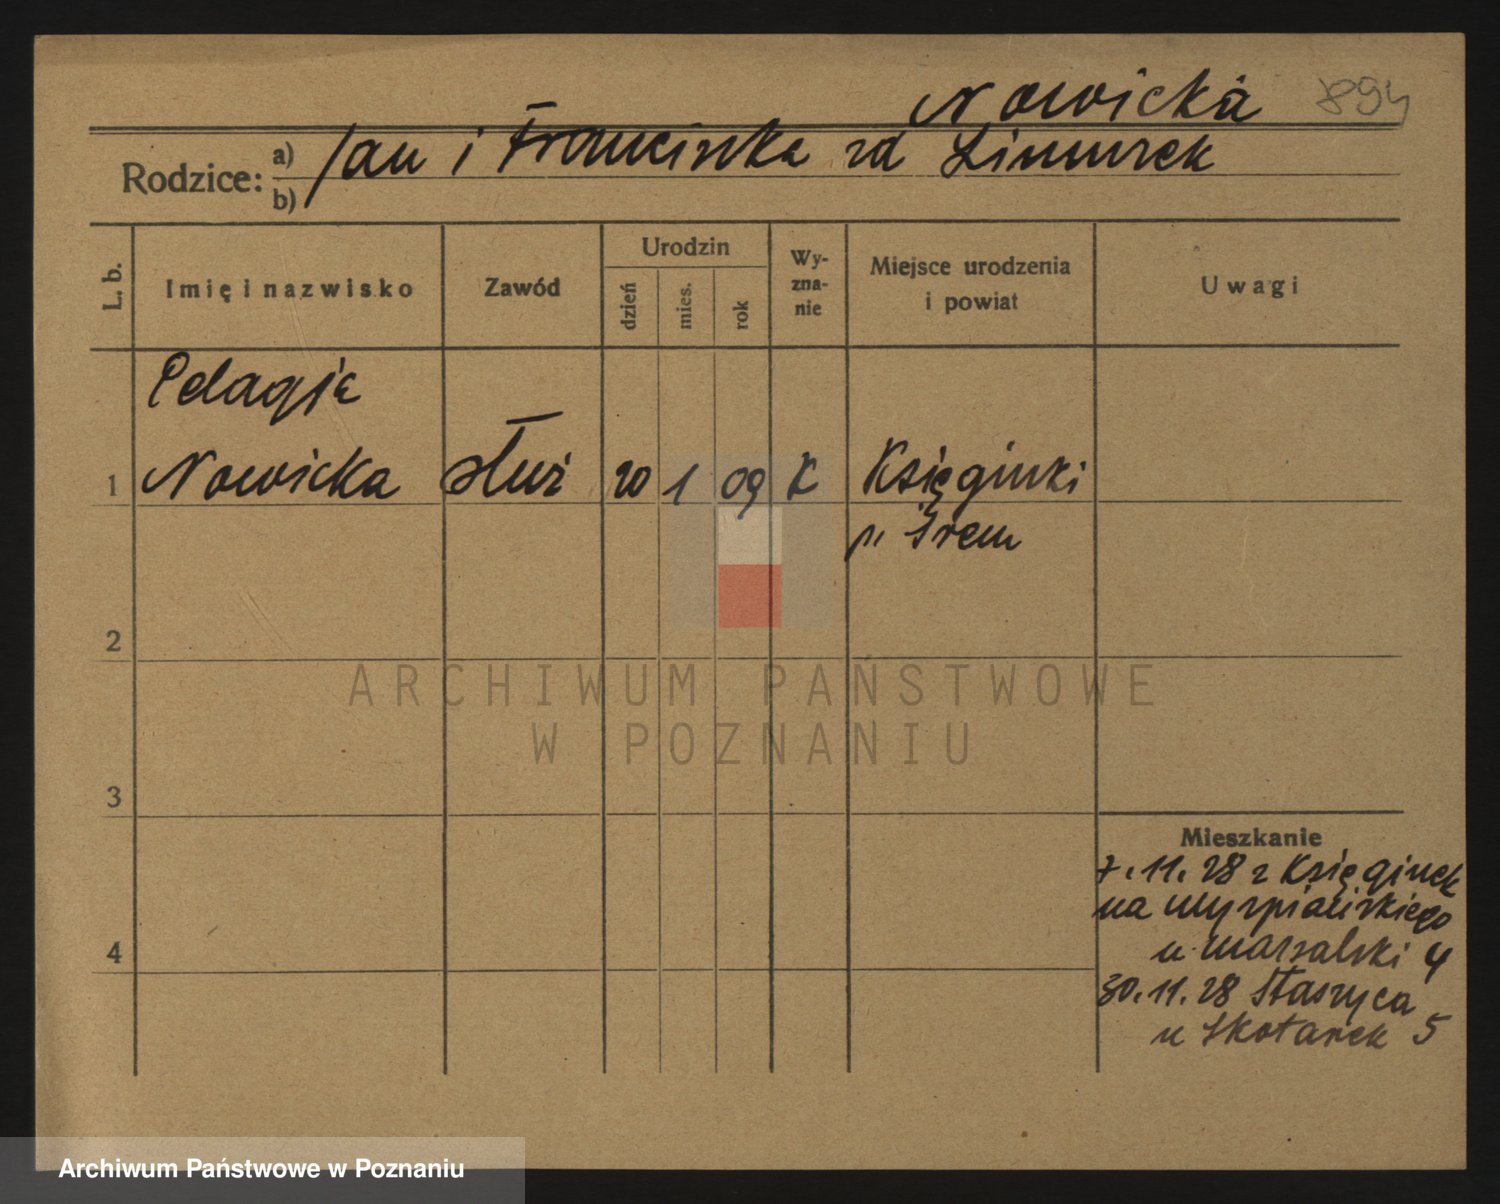 Nowicka 894
Rodzice: a) Jan i Franciszka zd
b)
L. b.
Imię i nazwisko
Zawód
Urodzin
dzień
mies.
rok
Wy-
zna-
nie
Miejsce urodzenia
i powiat
Uwagi
Pelagja
1 Nowicka służ 20 1 09 K Księginki
p. Śrem
2
ARCHIWUM PAŃSTWOWE
W POZNANIU
3
Mieszkanie
7.11.28 z Księginek
na Wyspiańskiego
u Marsalski 4
4
30.11.28 Staszyca
u Skotarek 5
Archiwum Państwowe w Poznaniu